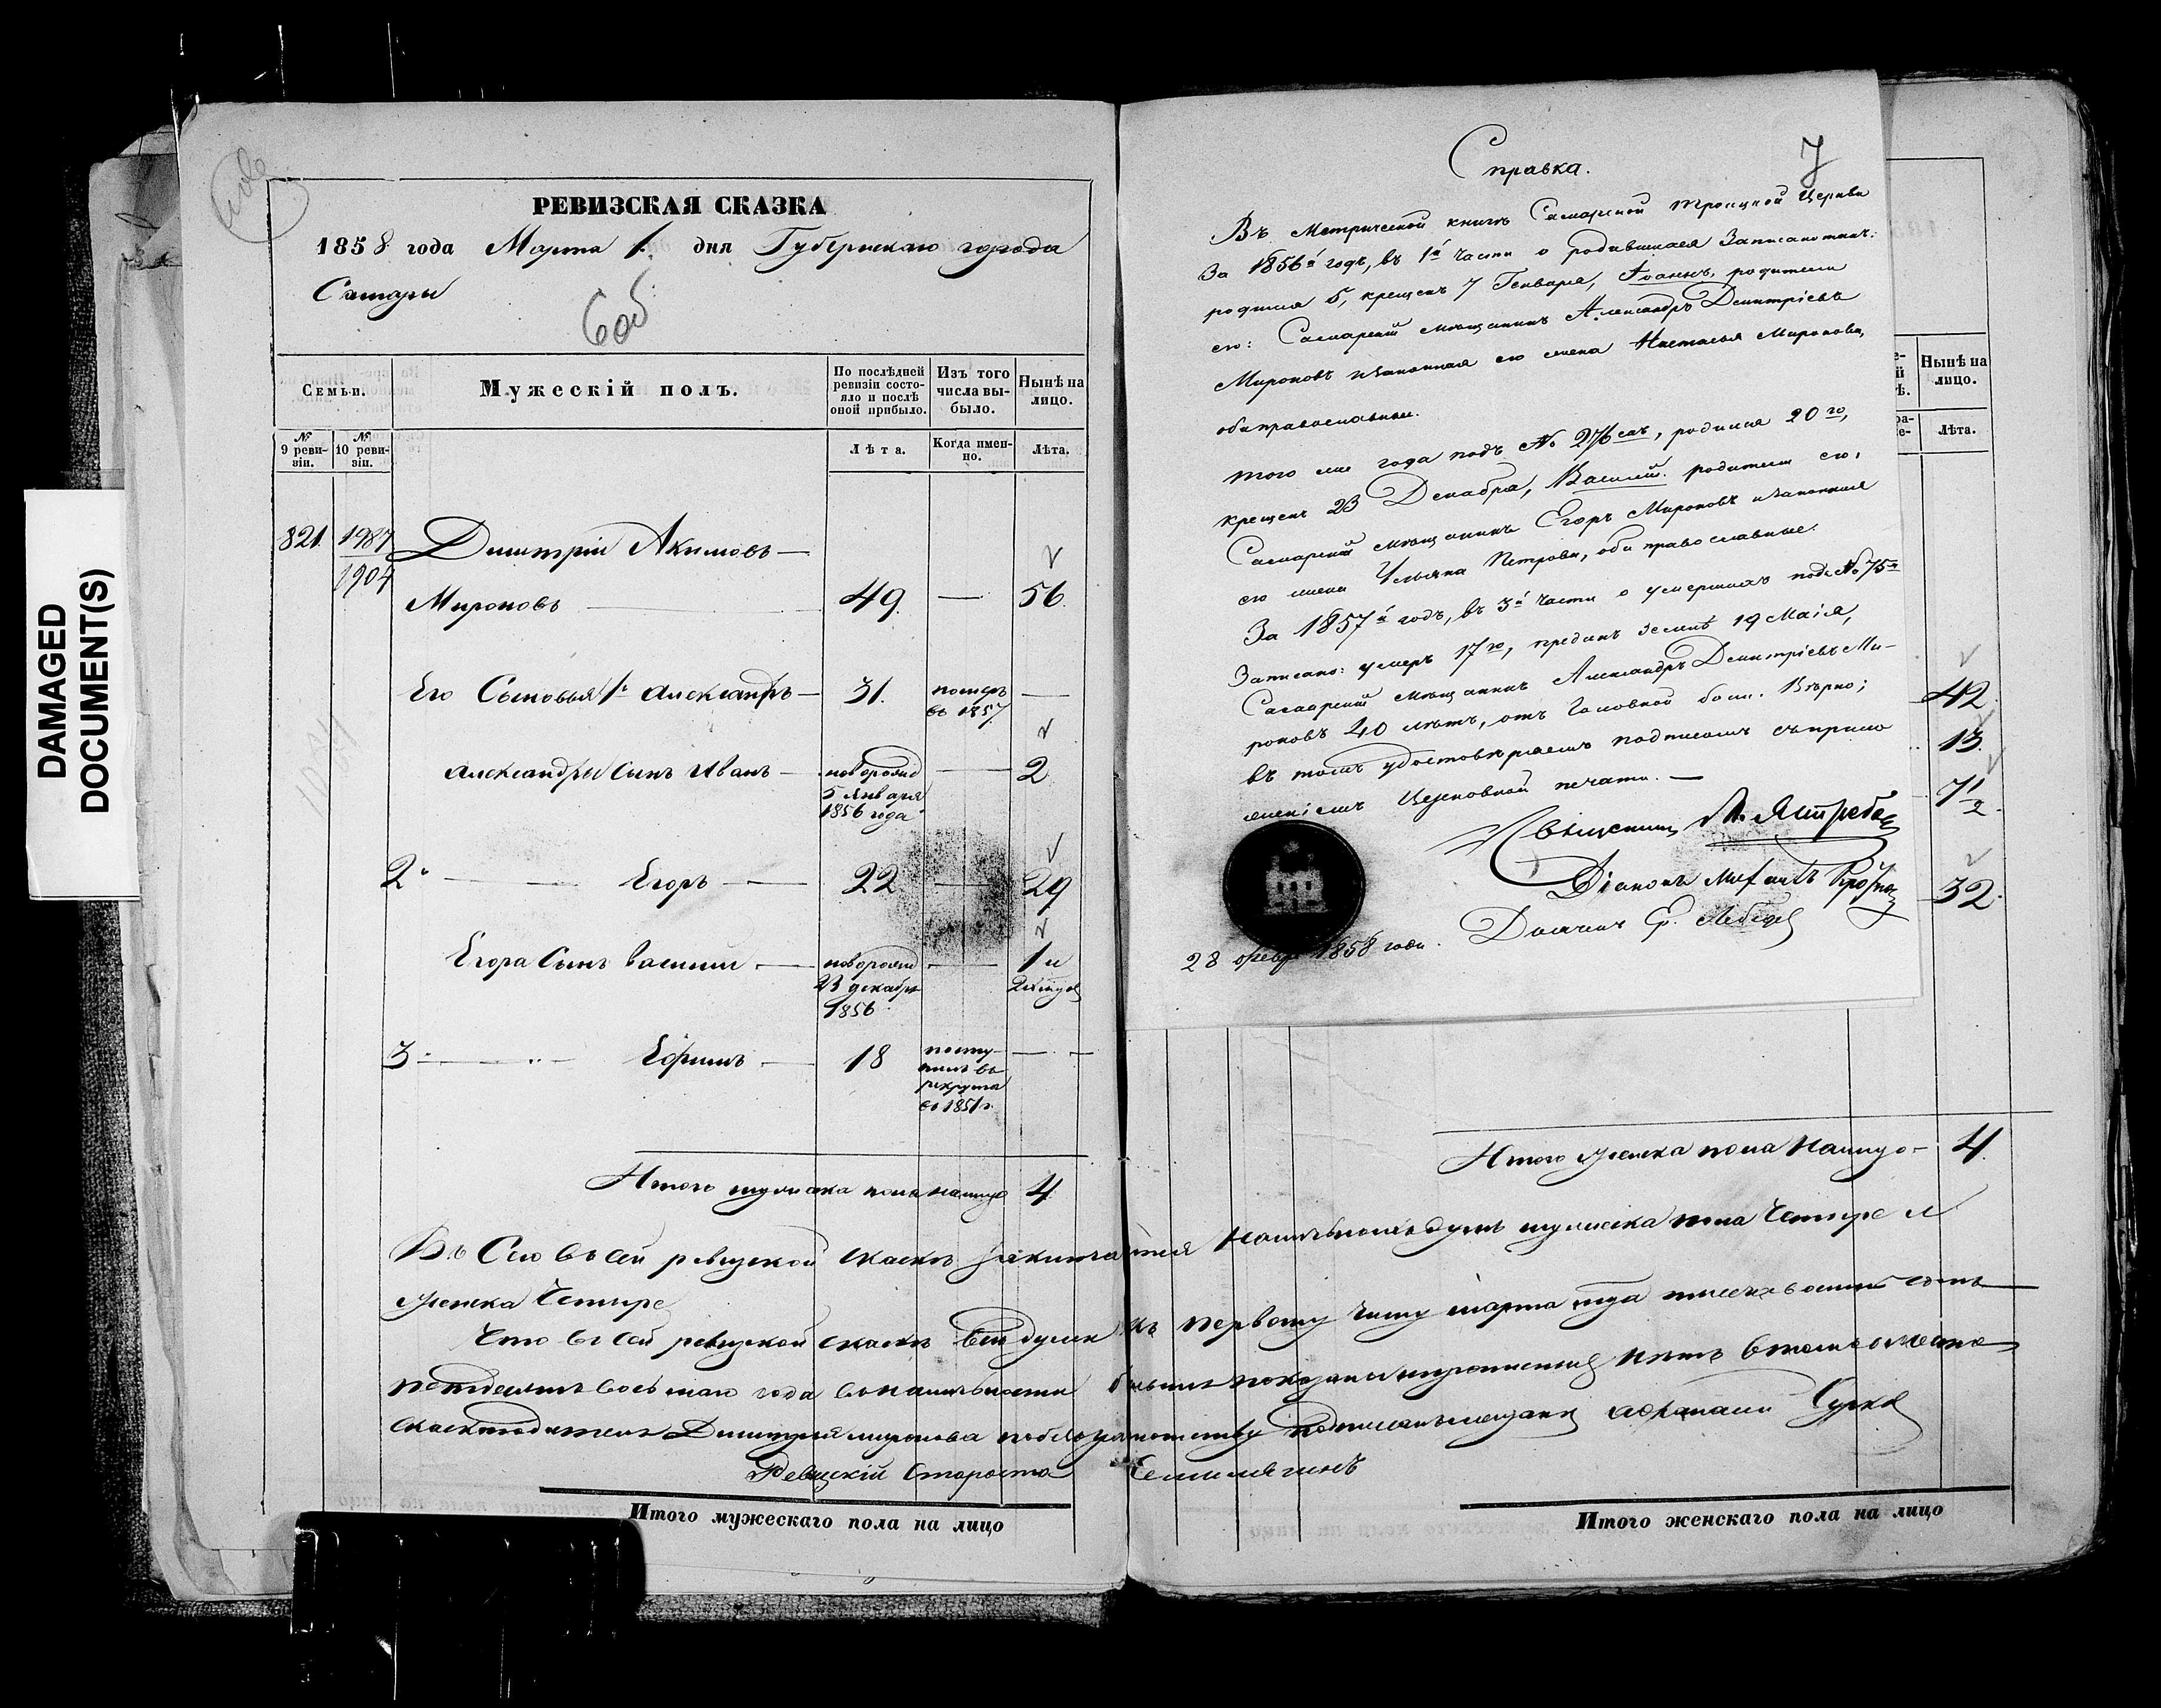 DAMAGED
DOCUMENT(S)
РЕВИЗСКАЯ СКАЗКА
1858 года Марта 1. дня Губернскаго города
Самары
6об
Семьи.
Мужескій полъ.
По послѣдней ревизіи состояло и послѣ оной прибыло.
Изъ того числа выбыло.
Нынѣ на лицо.
№ 9 ревизіи.
№ 10 ревизіи.
Лѣта.
Когда именно.
Лѣта.
821. 1987 Димитрій Акимовъ
1904
Мироновъ 49. 56.
Его Сыновья 1й Александръ 31. померъ въ 1857
Александра Сынъ Иванъ новорожд 5 Января 1856 года 2
2й Егоръ 22 29
Егора Сынъ Василий новорожд 23 декабря 1856 1 и
3й Ефимъ 18 поступилъ въ рекрута въ 1851 г.
Итого мужска пола налицо 4
Въ Сей ревизской сказкѣ заключается наличныхъ душъ мужеска пола Четыре и
женска Четыре
Что въ сей ревизской сказкѣ всѣ души къ первому числу марта тысяча восемь сотъ
пятдесятъ восьмаго года въ наличности
сказкоподатель Димитрия Миронова
Ревизскій Староста
Итого мужескаго пола на лицо
Справка.
7
Въ Метрической книгѣ Самарской Троицкой Церкви
За 1856й годъ, въ 1й части о родившихся Записано
родился 5, крещенъ 7 Генваря, Іоаннъ, родители
его: Самарскій мѣщанинъ Александръ Димитріевъ
Мироновъ и законная его жена Настасья Миронова,
оба православные.
того же года подъ № 276, родился 20го,
крещенъ 23 Декабря, Василій. родители его,
Самарскій мѣщанинъ Егоръ Мироновъ и законная
его жена Ульяна Петрова, оба православные.
За 1857й годъ, въ 3й части о умершихъ подъ № 75
Записано: умеръ 17го, преданъ землѣ 19 Маія,
Самарскій мѣщанинъ Александръ Димитріевъ Ми-
роновъ 40 лѣтъ, отъ Головной боли. Вѣрно;
въ томъ удостовѣряемъ подписомъ съ прило
женіемъ Церковной печати.
Священникъ
Діаконъ
28 февр 1858 года.
Нынѣ на лицо.
Лѣта.
42
13.
7 1/2.
32.
Итого женска пола налицо 4.
Итого женскаго пола на лицо